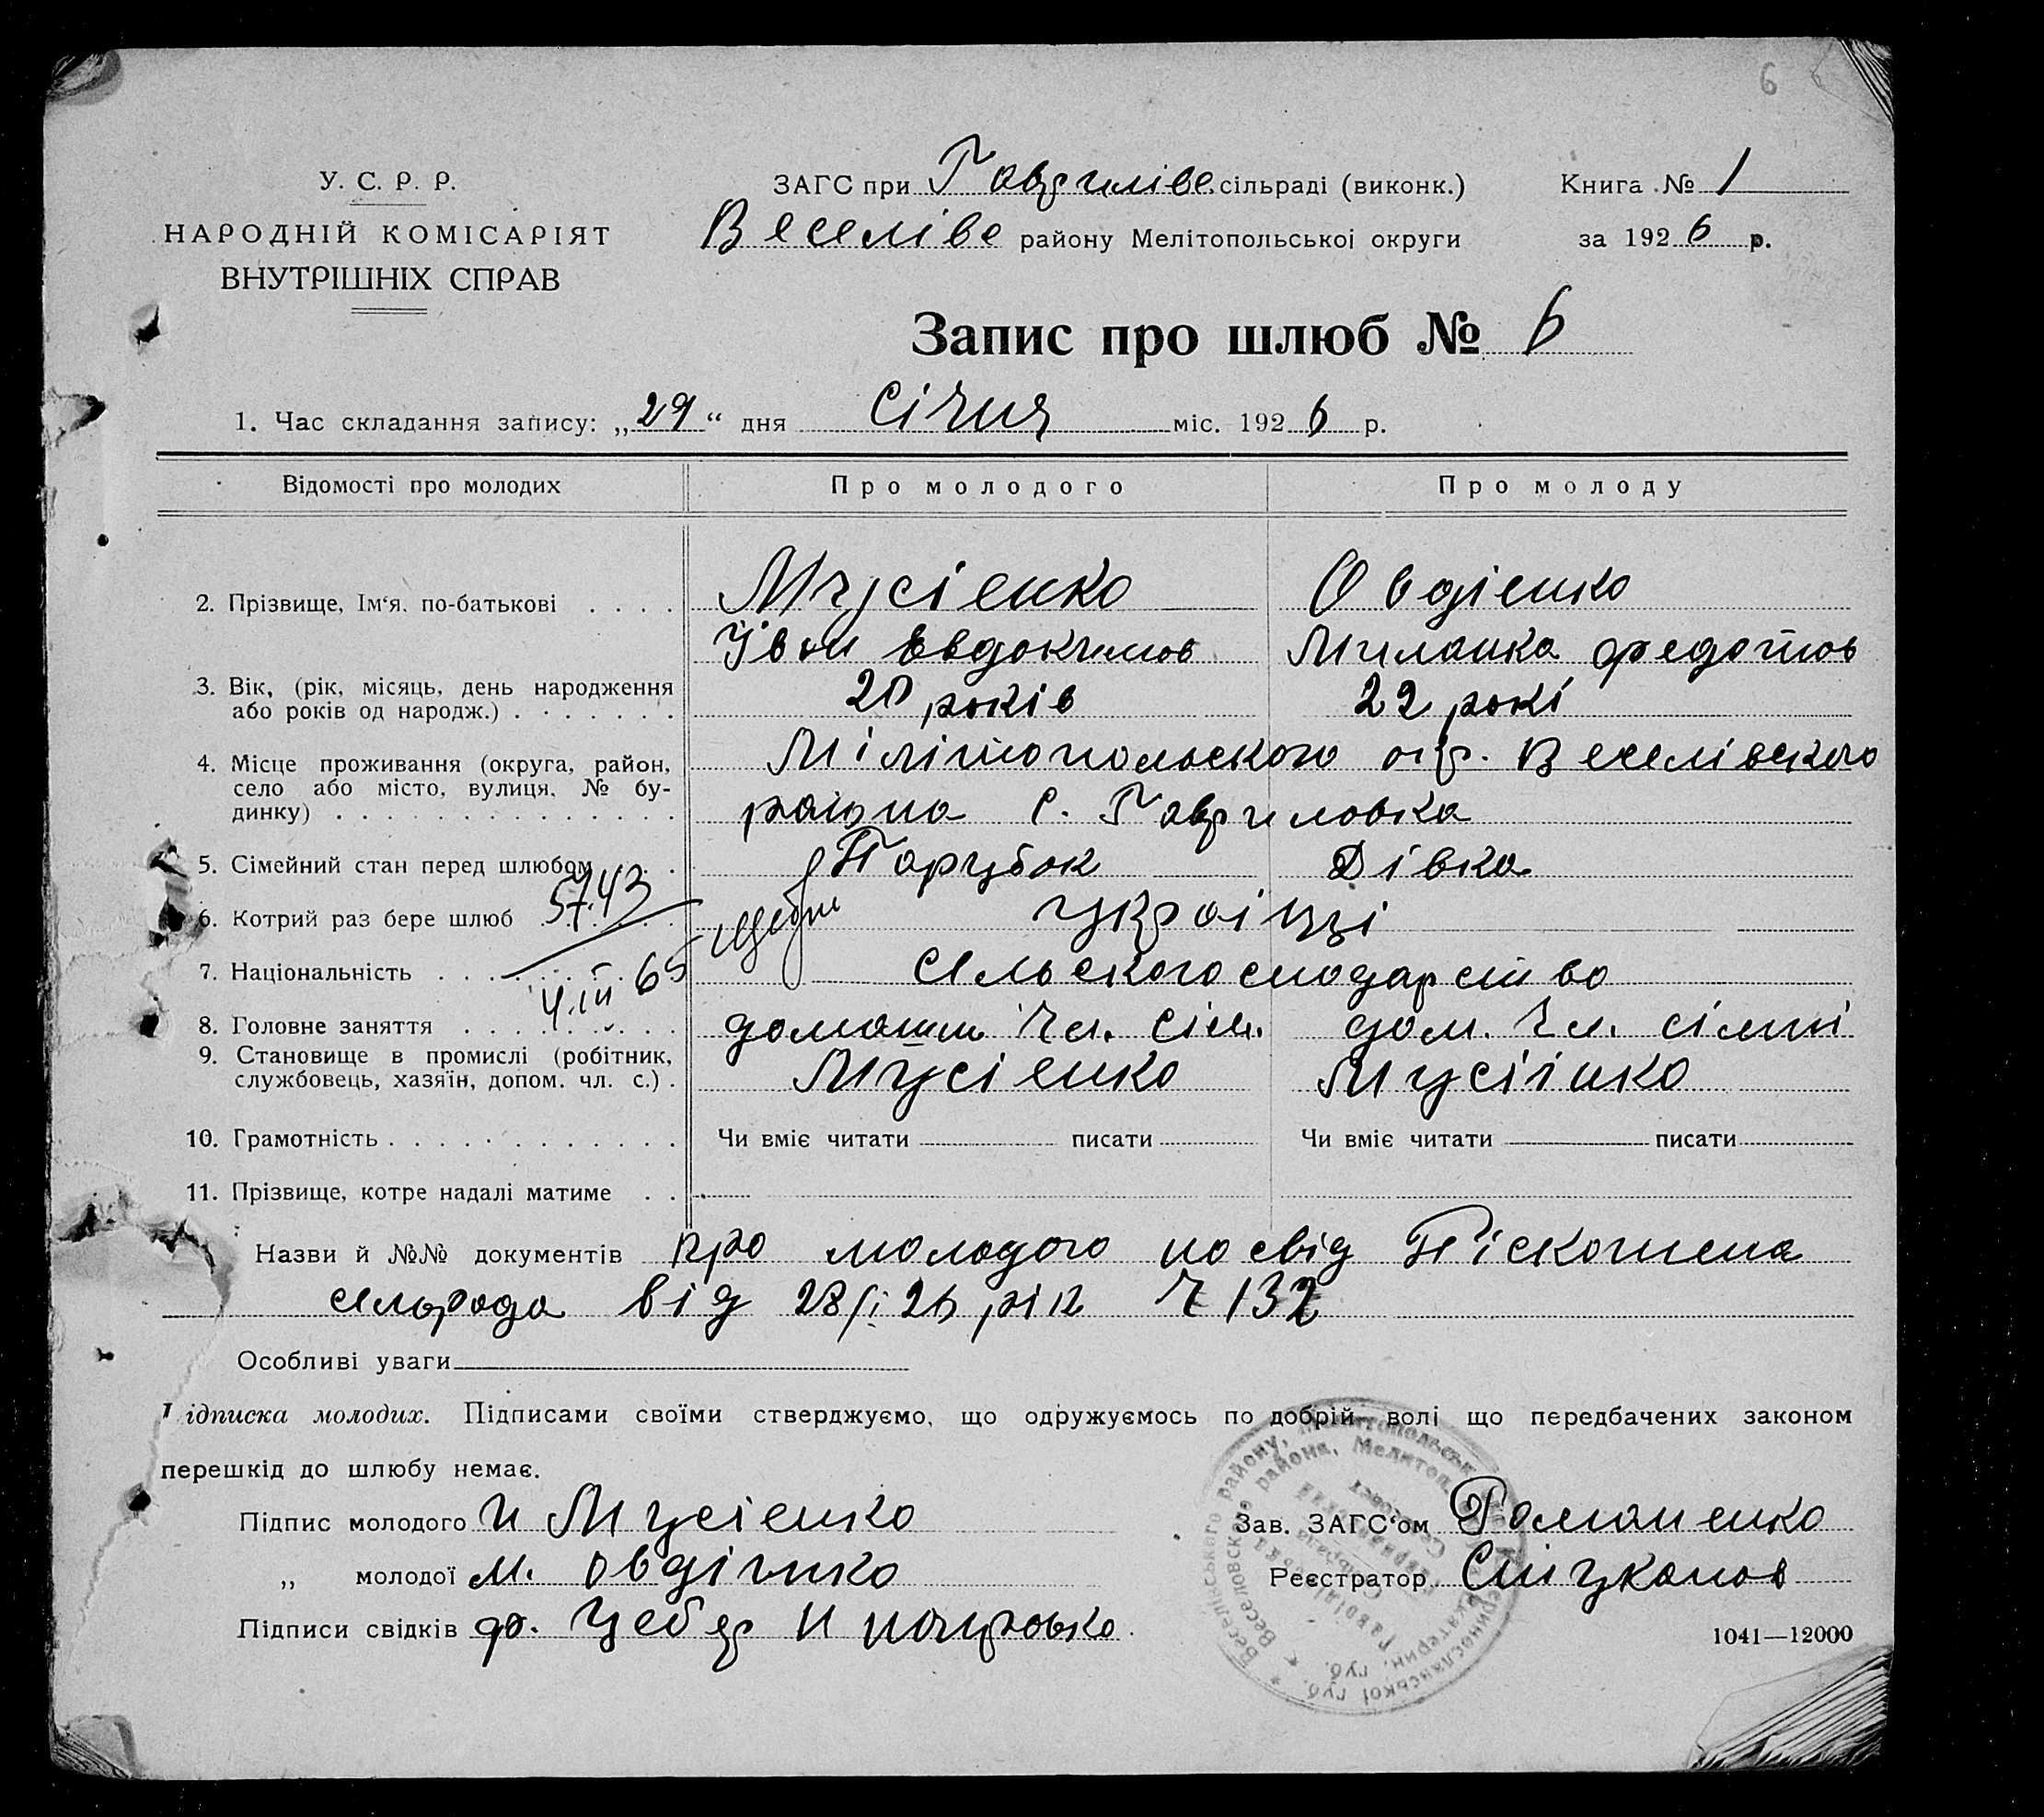 6
У. С. Р. Р.
НАРОДНІЙ КОМІСАРІЯТ
ВНУТРІШНІХ СПРАВ
ЗАГС при Гаврилівс. сільраді (виконк.)
Книга № 1
Веселівс району Мелітопольської округи
за 1926 р.
Запис про шлюб № 6
1. Час складання запису: „29“ дня Січня міс. 1926 р.
Відомості про молодих
Про молодого
Про молоду
2. Прізвище, Ім‘я, по-батькові
Мусієнко
Овдієнко
Іван Евдокимов
Миланка Федотов
3. Вік, (рік, місяць, день народження
або років од народж.)
20 років
22 рокі
4. Місце проживання (округа, район,
село або місто, вулиця, № бу-
динку)
Мілітопольского окр. Веселівского
района С. Гавриловка
5. Сімейний стан перед шлюбом
Парубок
Дівка
57.43
6. Котрий раз бере шлюб
українці
7. Національність
4.III 65
сельского сподарство
8. Головне заняття
домашн чл. сім.
дом. чл. сімні
9. Становище в промислі (робітник,
службовець, хазяїн, допом. чл. с.)
Мусієнко
Мусіінко
10. Грамотність
Чи вміє читати писати
Чи вміє читати писати
11. Прізвище, котре надалі матиме
Назви й №№ документів про молодого посвід Піскошена
сельрада від 28/I 26 рік ч 132
Особливі уваги
Підписка молодих. Підписами своїми стверджуємо, що одружуємось по добрій волі що передбачених законом
перешкід до шлюбу немає.
Підпис молодого И Мусієнко
Зав. ЗАГС‘ом Романенко
„ молодої М. Овдіенко
Реєстратор Стуканов
Підписи свідків ф. Цебер И
1041—12000